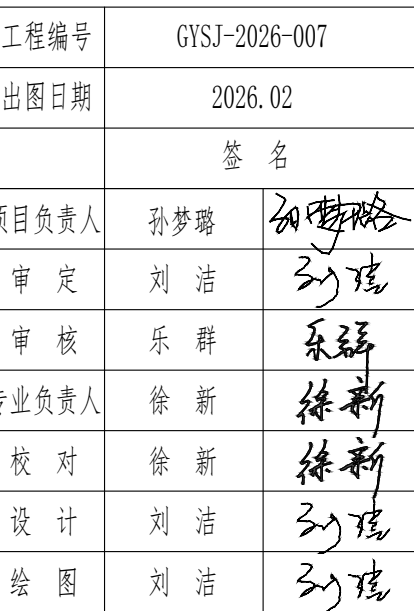 工程编号 GYSJ-2026-007
出图日期 2026.02
签 名
项目负责人 孙梦璐 孙梦璐
审 定 刘 洁 刘洁
审 核 乐 群 乐群
专业负责人 徐 新 徐新
校 对 徐 新 徐新
设 计 刘 洁 刘洁
绘 图 刘 洁 刘洁